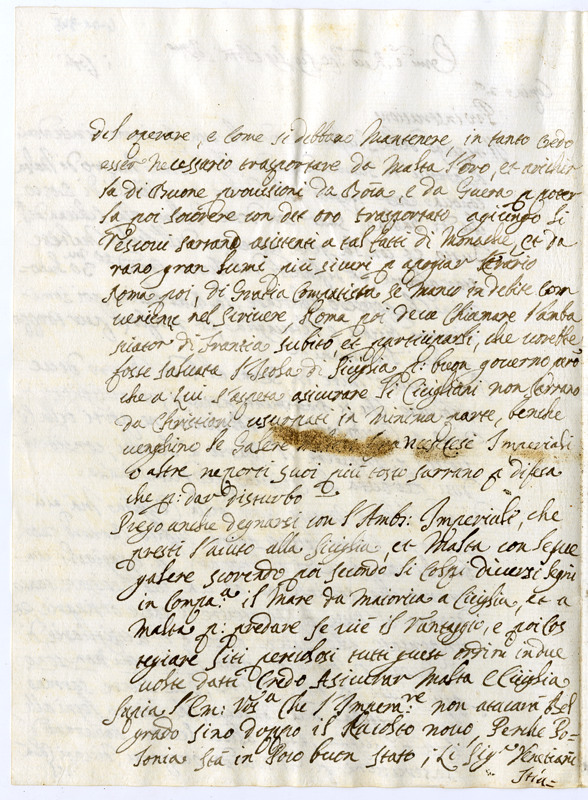 del operare, e Come si debbano Mantenere in tanto Credo
esser necessario trasportare da Malta l'oro, et arichir
la di Buone provisioni da Boca, e da Guera p poter
la poi socorere con det oro trasportato agiungo li
Vescovi sarano asistenti a tal fatti di Monache, et da
rano gran lumi più sicuri p apogiar
Roma poi, di Gratia Compatisca se Manco in debite Con
venienze nel scrivere, Roma poi deve Chiamare l'amba
sciator di Francia subito, et participarli, che vorebbe
fosse salvata l'Isola di Siciglia p: buon governo però
che a Lui s'aspeta asicurare li Cicigliani non sarano
da Christiani usurpati in Minima parte, benche
venghino le Galere Francesi Imperiali
o altre ne porti suoi più tosto sarrano p difesa
che p: dar disturbo
Prego anche degnarsi con l'Amb: Imperiali, che
presti l'aiuto alla Siciglia, et Malta con le sue
galere scorendo poi secondo li Colpi diversi legni
in Compa.a il Mare da Maiorica a Ciciglia, et a
Malta p: predare se vi è il Vantaggio, e poi Cos
tegiare siti pericolosi tutti quest ordini in due
volte datti Credo Asicurar Malta e Ciciglia
Sapia l'Em: Vos.a Che l'Impera.re non atacarà Bel
grado sino doppo il Racolto novo, Perche Po-
lonia stà in Poco buon stato, Li Sig.ri Venetiani